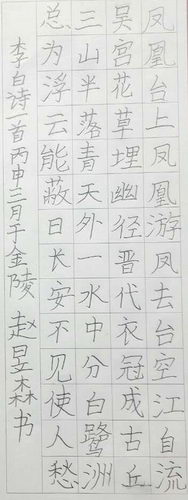 凤凰台上凤凰游凤去台空江自流
吴宫花草埋幽径晋代衣冠成古丘
三山半落青天外一水中分白鹭洲
总为浮云能蔽日长安不见使人愁
李白诗一首丙申三月于金陵赵昱森书